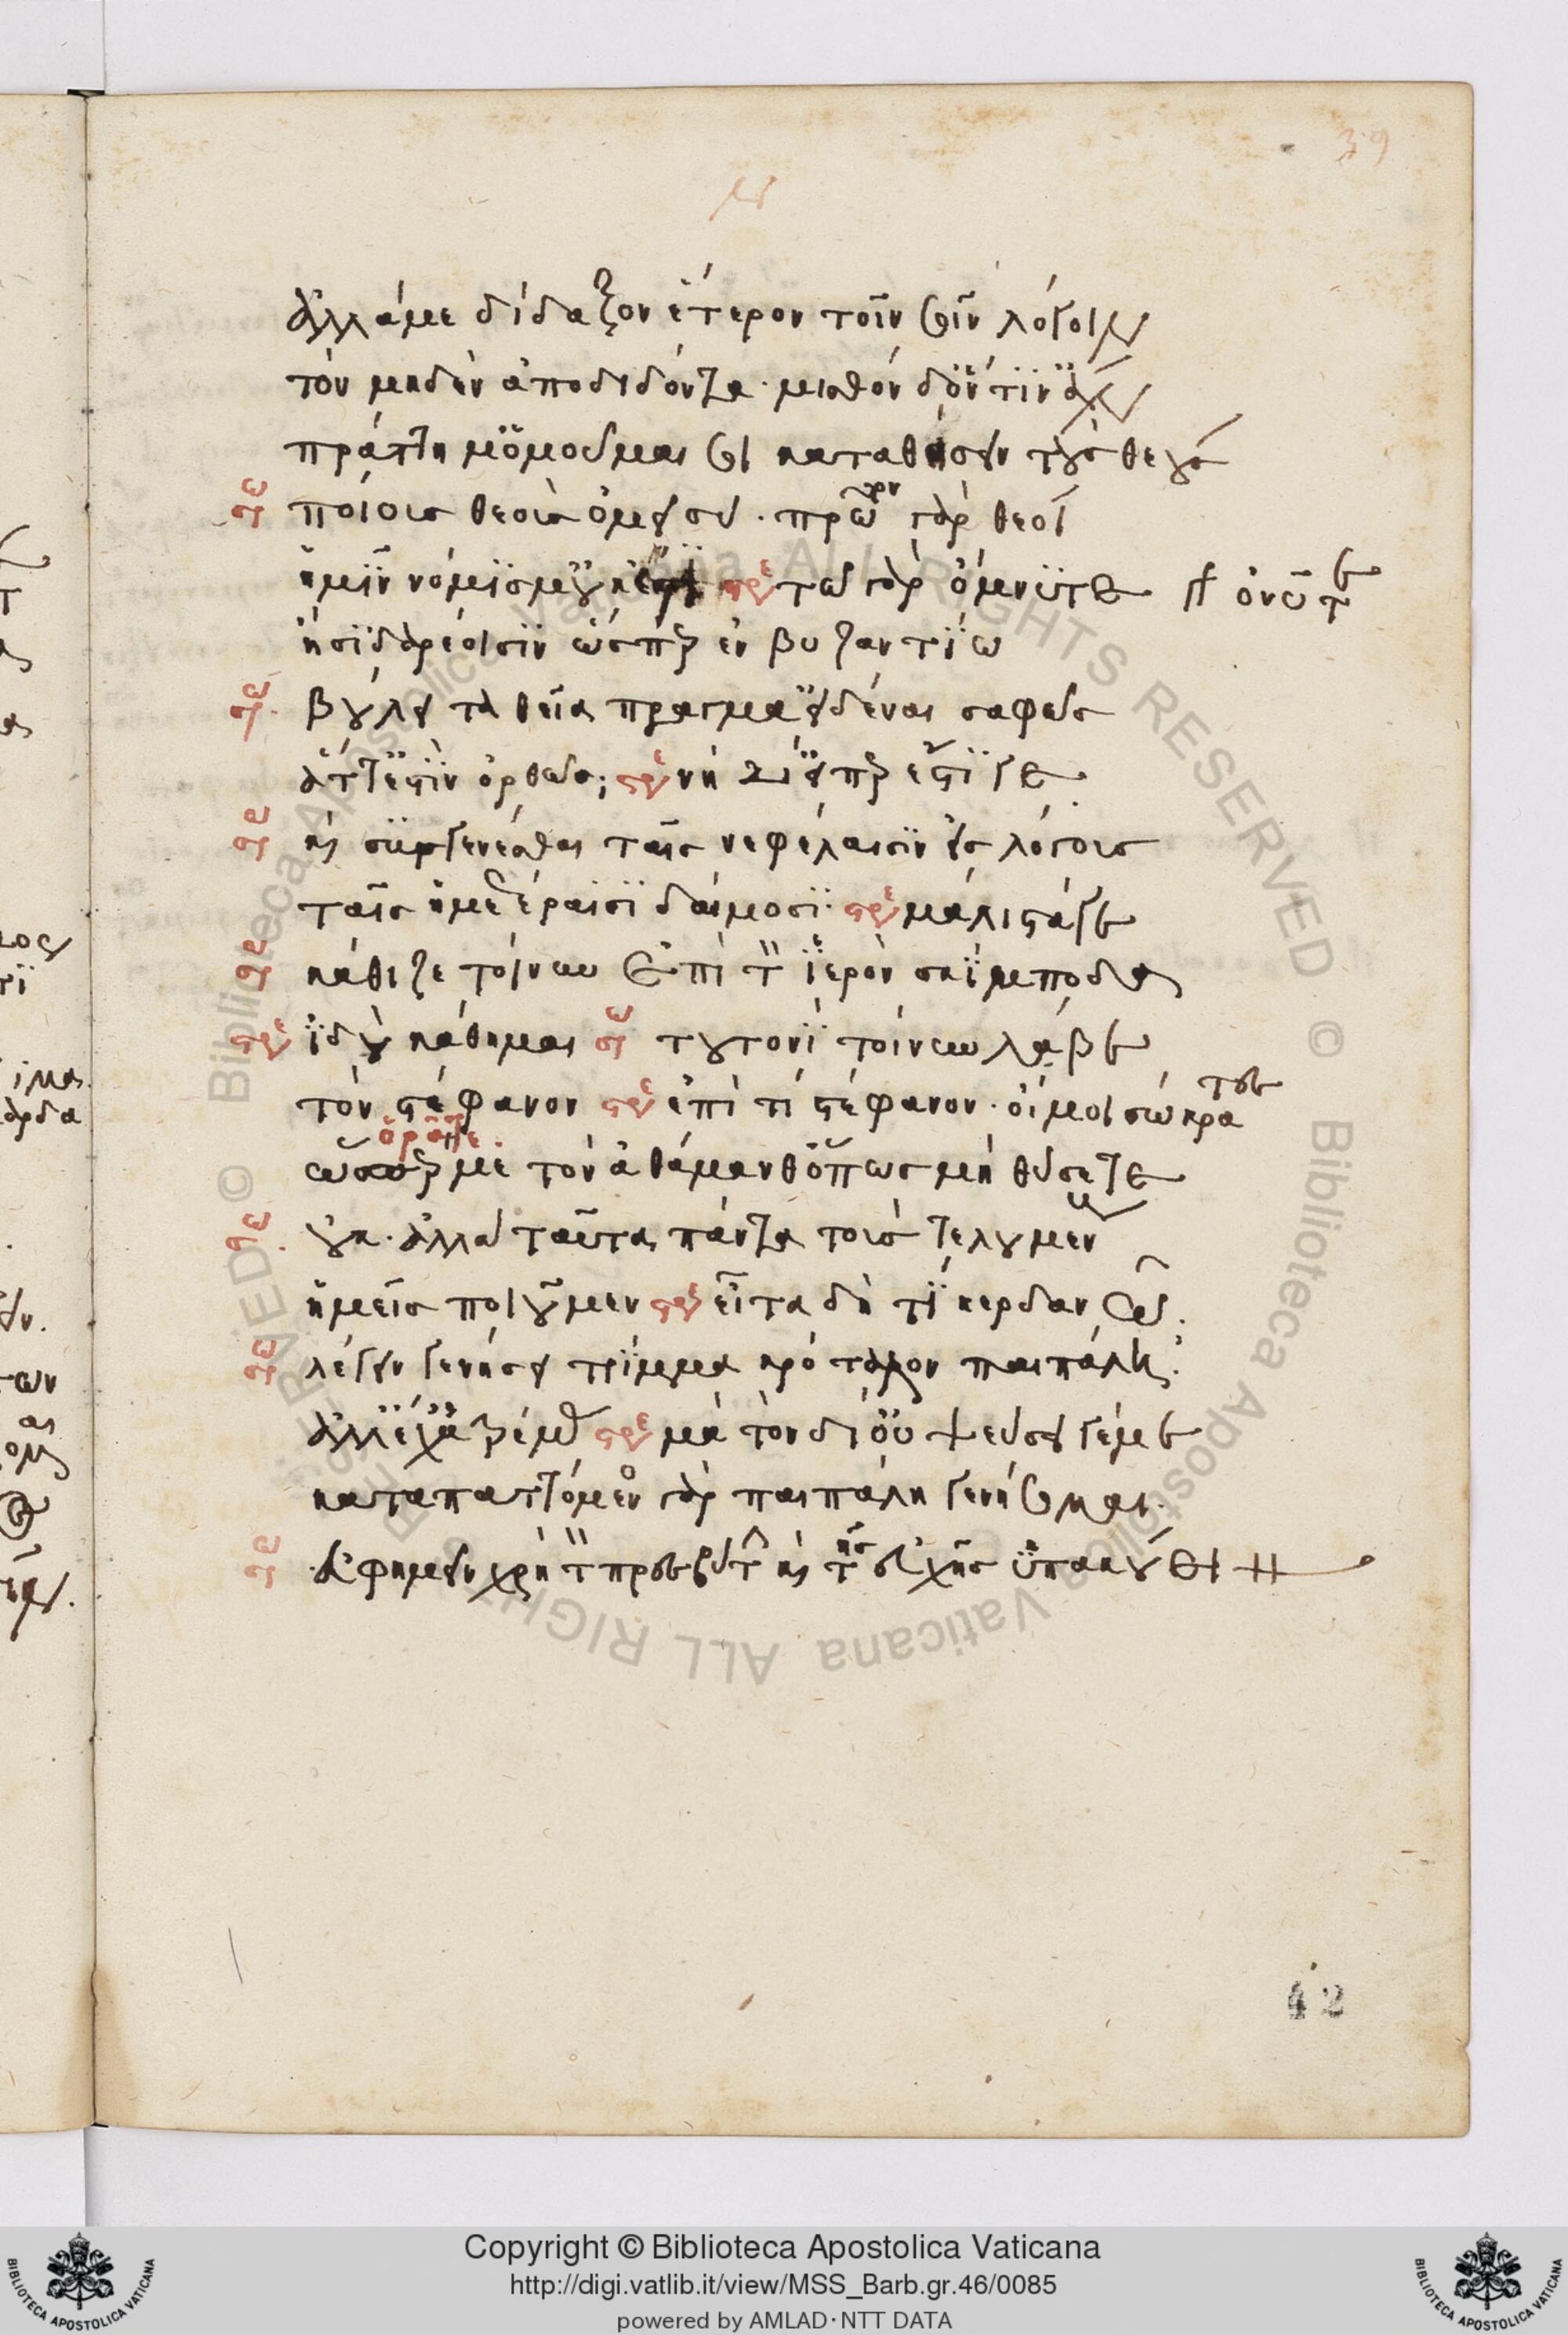 39
ἀλλά με δίδαξον ἕτερον τοῖν σοῖν λόγοιν
τὸν μηδὲν ἀποδιδόντα. μισθὸν δ' ὅντιν' ἂν
πράττη μ' ὀμοῦμαι σοι καταθήσειν τοὺς θεούς
ποίους θεοὺς ὀμεῖ σύ. πρῶτον γὰρ θεοὶ
ἡμῖν νόμισμ' οὐκ ἔστι τῶ γὰρ ὄμνυτε
ἢ σιδαρέοισιν ὥσπερ ἐν βυζαντίω
βούλει τὰ θεῖα πράγματ' εἰδέναι σαφῶς
ἅττ' ἐστὶν ὀρθῶς; νὴ δί' εἴπερ ἔστι γε
καὶ συγγενέσθαι ταῖς νεφέλαισιν εἰς λόγους
ταῖς ἡμετέραισι δαίμοσι. μάλιστά γε
κάθιζε τοίνυν ἐπὶ τὸν ἱερὸν σκίμποδα
ἰδοὺ κάθημαι τουτονὶ τοίνυν λάβε
τὸν στέφανον ἐπὶ τί στέφανον. οἴμοι σώκρατες
ὥσπερ με τὸν ἀθάμανθ' ὅπως μὴ θύσετε
οὔκ. ἀλλὰ ταῦτα πάντα τοὺς τελουμένους
ἡμεῖς ποιοῦμεν εἶτα δὴ τί κερδανῶ.
λέγειν γενήσει τρίμμα κρόταλον παιπάλη.
ἀλλ' ἔχ' ἀτρέμας μὰ τὸν δί' οὐ ψεύσει γέ με
καταπαττόμενος γὰρ παιπάλη γενήσομαι.
εὐφημεῖν χρὴ τὸν πρεσβύτην καὶ τῆς εὐχῆς ὑπακούειν
42
Copyright © Biblioteca Apostolica Vaticana
http://digi.vatlib.it/view/MSS_Barb.gr.46/0085
powered by AMLAD · NTT DATA